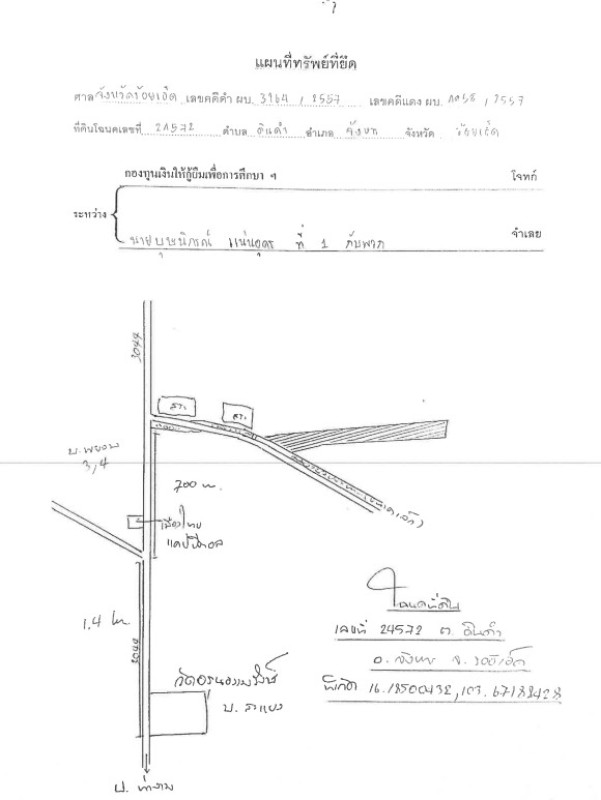 แผนที่ทรัพย์ที่ยึด
ศาล จังหวัดร้อยเอ็ด เลขคดีดำ ผบ. 3964 / 2557 เลขคดีแดง ผบ. / 2557
ที่ดินโฉนดเลขที่ 24572 ตำบล ดินดำ อำเภอ จังหาร จังหวัด ร้อยเอ็ด
กองทุนเงินให้กู้ยืมเพื่อการศึกษา ฯ โจทก์
ระหว่าง
นาย ที่ 1 กับพวก จำเลย
3044
สระ
สระ
บ.พยอม
3,4
700 ม.
เมืองไทย
แคปปิตอล
1.4 กม
3044
โฉนดที่ดิน
เลขที่ 24572 ต. ดินดำ
อ. จังหาร จ. ร้อยเอ็ด
พิกัด
วัด
บ.
บ. ท่างาม